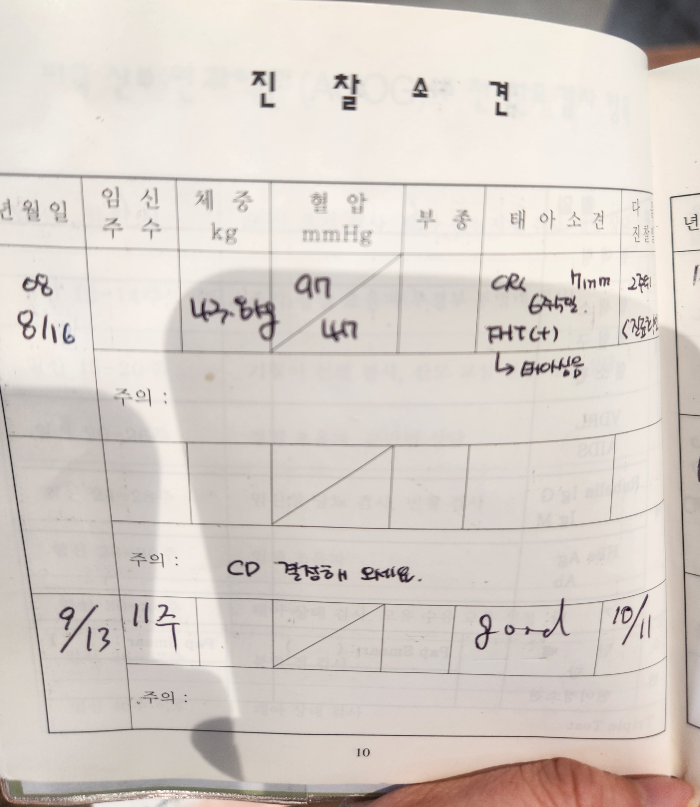 진 찰 소 견
년 월 일
임 신
주 수
체 중
kg
혈 압
mmHg
부 종
태 아 소 견
08
8/16
43.8kg
97
47
CRL 7mm
6주5일.
FHT(+)
↳ 태아심음
주의 :
주의 : CD 결정해 오세요.
9/13
11주
good
10/11
주의 :
10